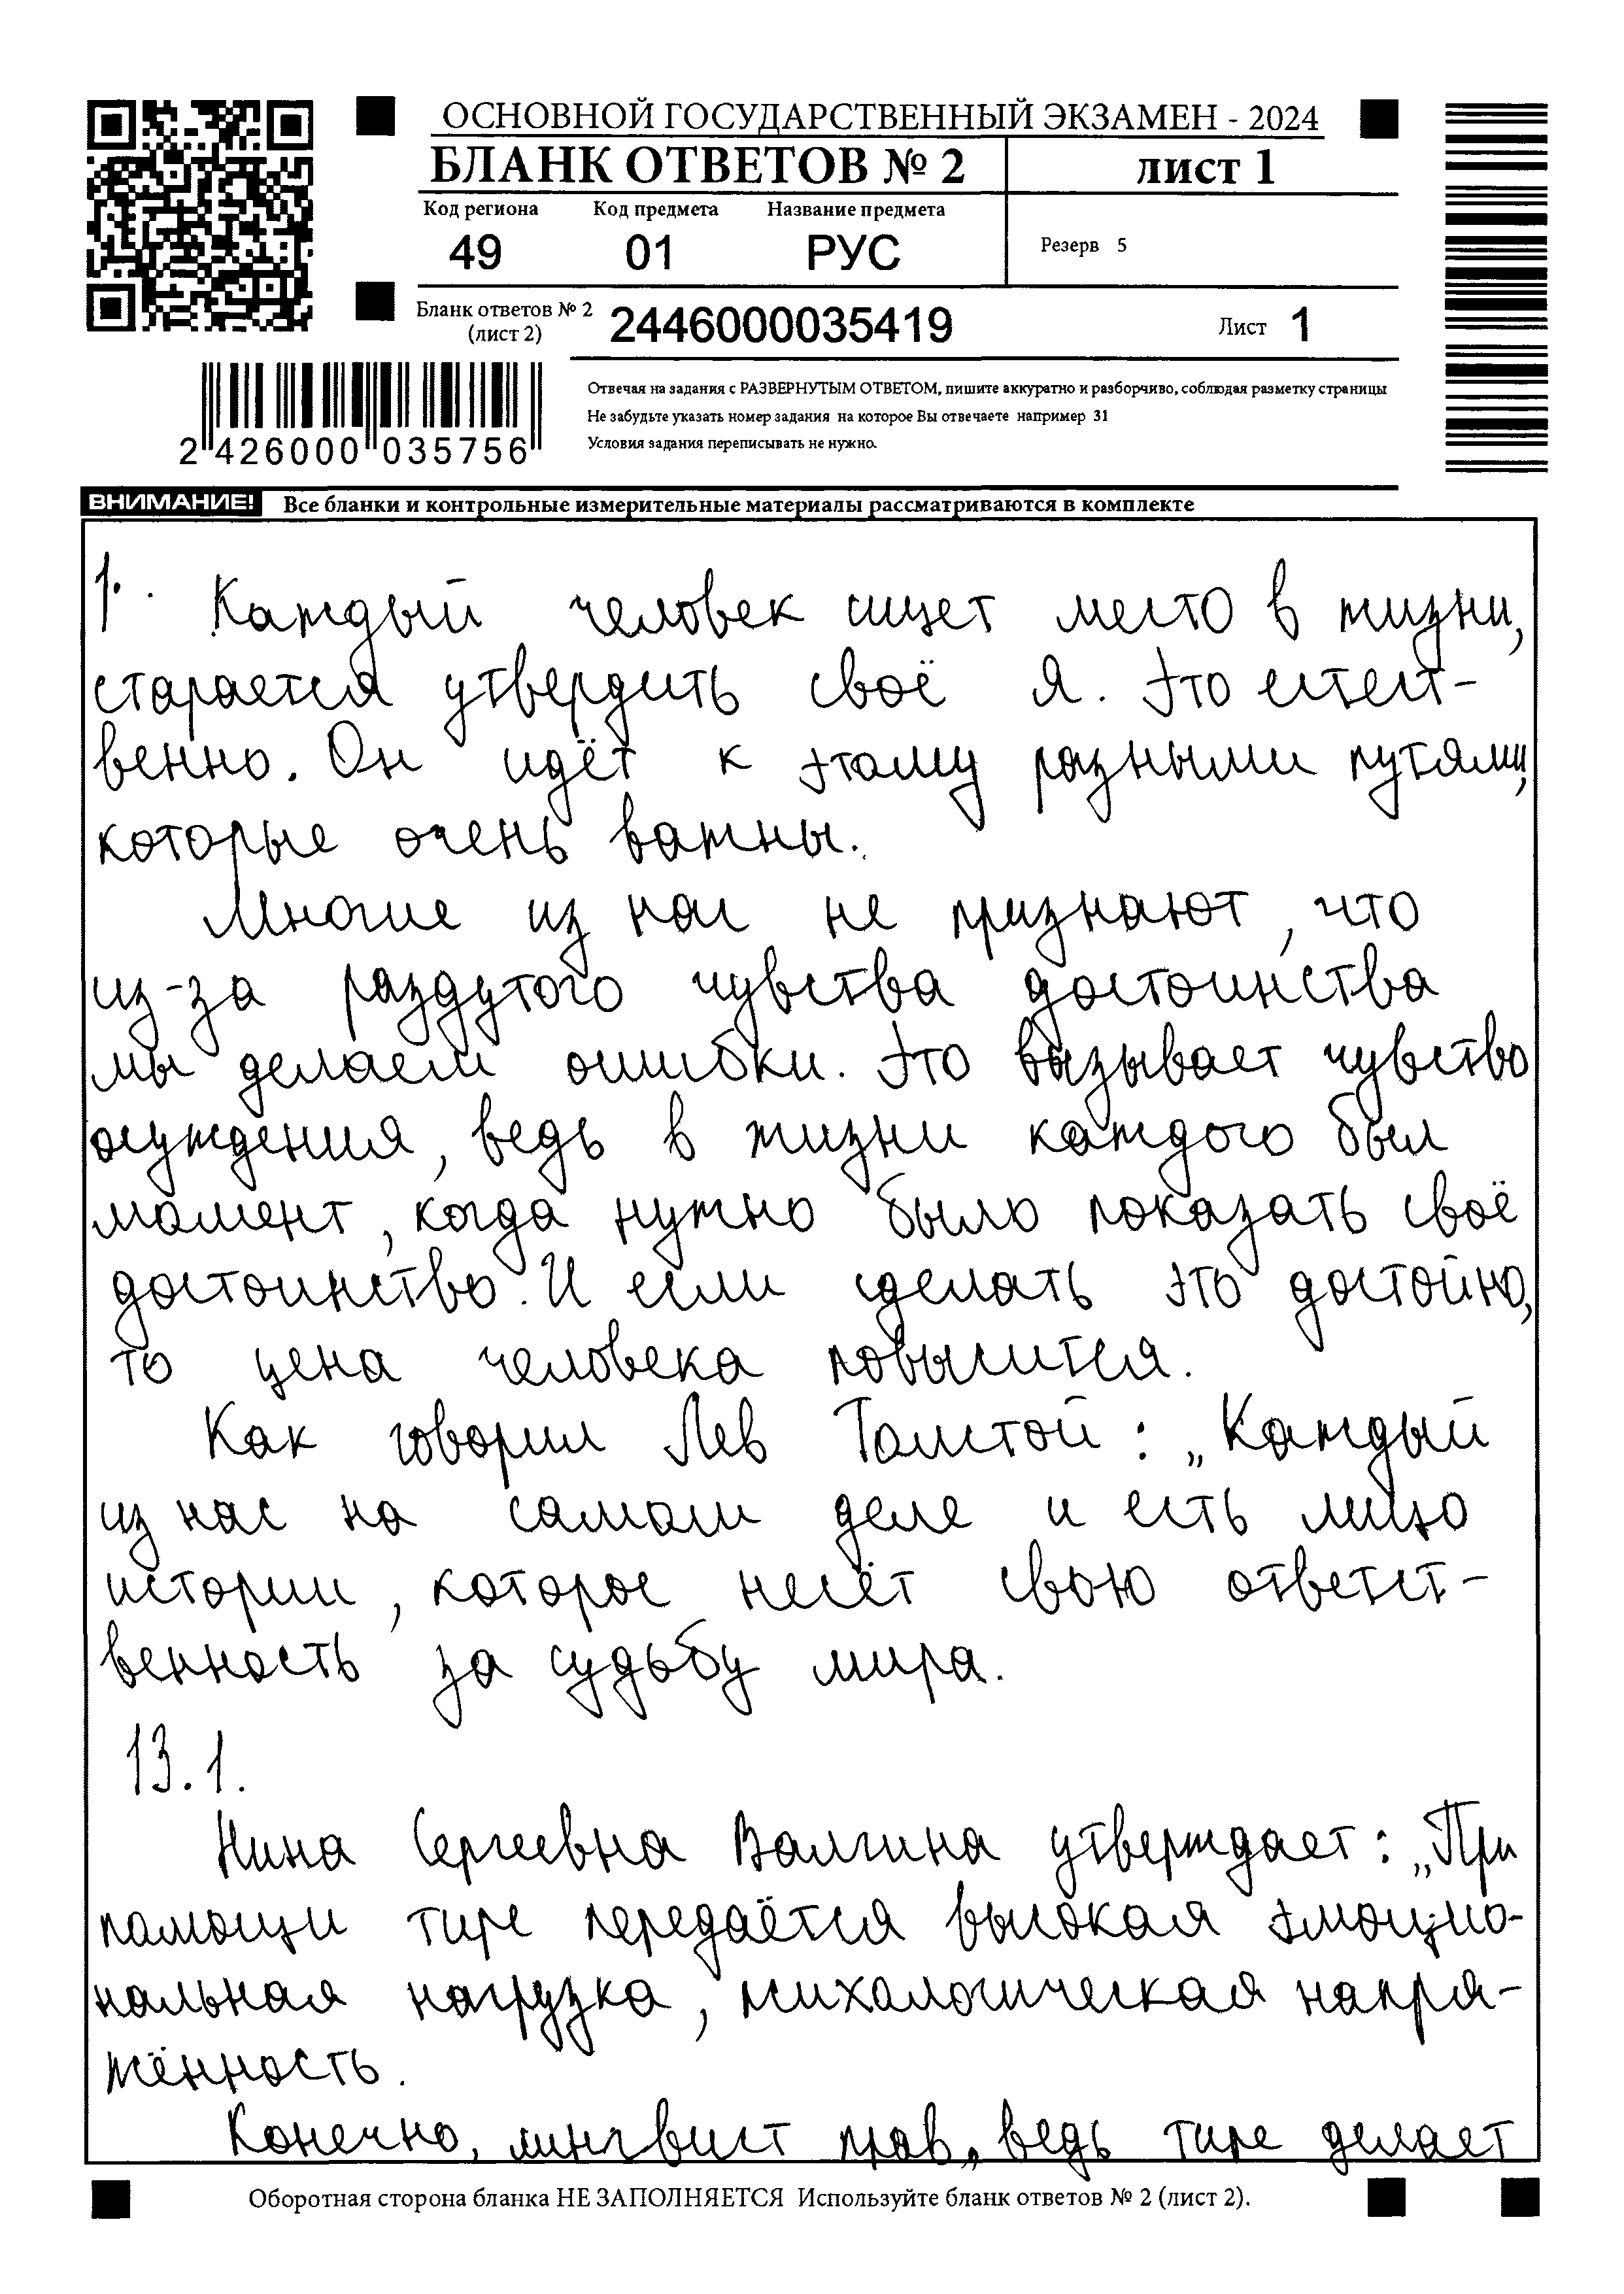 ОСНОВНОЙ ГОСУДАРСТВЕННЫЙ ЭКЗАМЕН - 2024
БЛАНК ОТВЕТОВ № 2
лист 1
Код региона
Код предмета
Название предмета
49
01
РУС
Резерв 5
Бланк ответов № 2
(лист 2)
2446000035419
Лист 1
Отвечая на задания с РАЗВЕРНУТЫМ ОТВЕТОМ, пишите аккуратно и разборчиво, соблюдая разметку страницы
Не забудьте указать номер задания на которое Вы отвечаете например 31
Условия задания переписывать не нужно.
2 426000 035756
ВНИМАНИЕ! Все бланки и контрольные измерительные материалы рассматриваются в комплекте
1. Каждый человек ищет место в жизни,
старается утвердить своё я. Это естест-
венно. Он идёт к этому разными путями,
которые очень важны.
Многие из нас не признают, что
из-за раздутого чувства достоинства
мы делаем ошибки. Это вызывает чувство
осуждения, ведь в жизни каждого был
момент, когда нужно было показать своё
достоинство. И если сделать это достойно,
то цена человека повысится.
Как говорил Лев Толстой: „Каждый
из нас на самом деле и есть лицо
истории, которое несёт свою ответст-
венность за судьбу мира.
13.1.
Нина Сергеевна Валгина утверждает: „При
помощи тире передаётся высокая эмоцио-
нальная нагрузка, психологическая напря-
жённость.
Конечно, лингвист прав, ведь тире делает
Оборотная сторона бланка НЕ ЗАПОЛНЯЕТСЯ Используйте бланк ответов № 2 (лист 2).